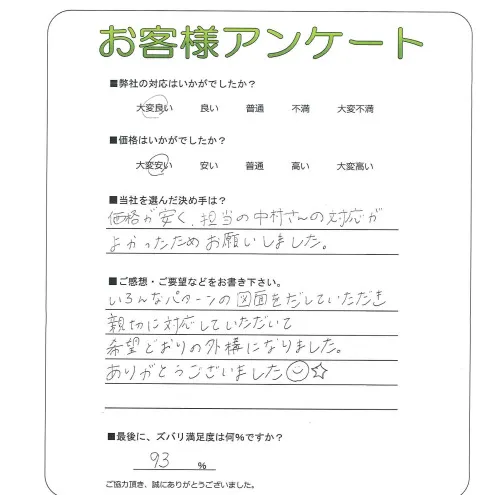 お客様アンケート
■弊社の対応はいかがでしたか？
大変良い 良い 普通 不満 大変不満
■価格はいかがでしたか？
大変安い 安い 普通 高い 大変高い
■当社を選んだ決め手は？
価格が安く、担当の中村さんの対応が
よかったためお願いしました。
■ご感想・ご要望などをお書き下さい。
いろんなパターンの図面をだしていただき
親切に対応していただいて
希望どおりの外構になりました。
ありがとうございました☺☆
■最後に、ズバリ満足度は何%ですか？
93 %
ご協力頂き、誠にありがとうございました。